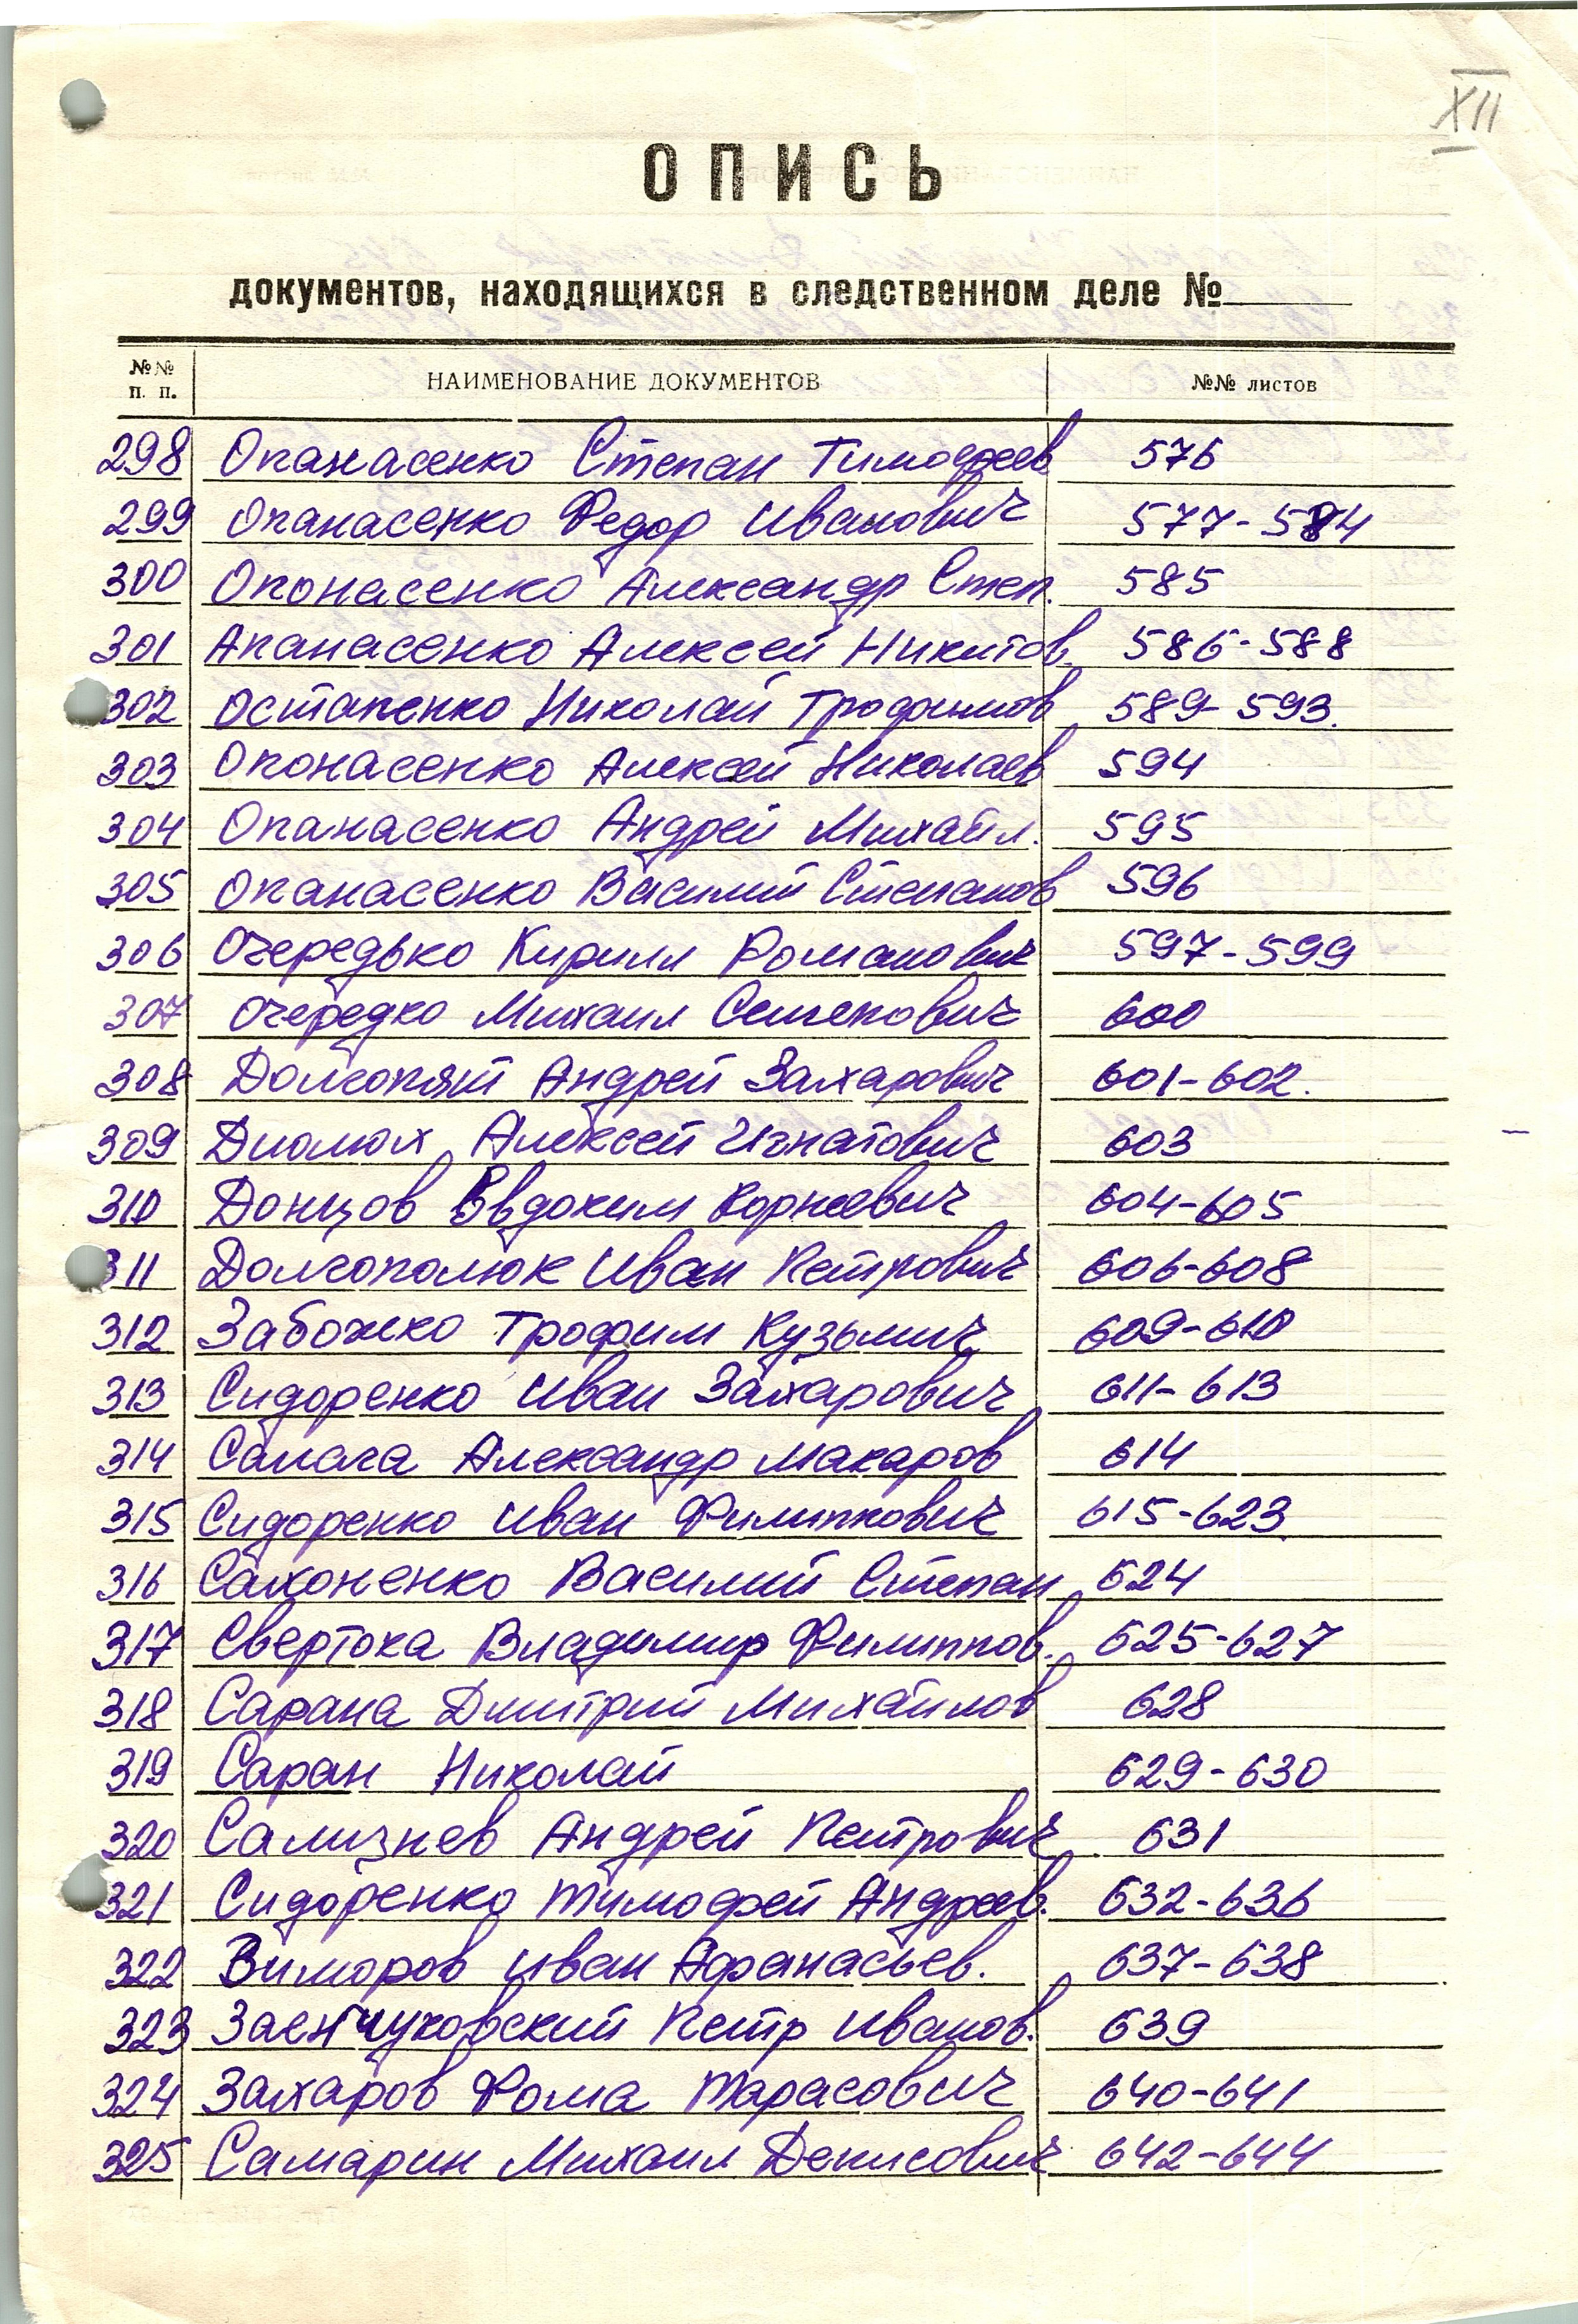 XII
ОПИСЬ
документов, находящихся в следственном деле №
№№ п. п. НАИМЕНОВАНИЕ ДОКУМЕНТОВ №№ листов
298 Опанасенко Степан Тимофеев 576
299 Опанасенко Федор Иванович 577-584
300 Опонасенко Александр Степ. 585
301 Апанасенко Алексей Никитов. 586-588
302 Остапенко Николай Трофимов 589-593.
303 Опонасенко Алексей Николаев 594
304 Опанасенко Андрей Михайл. 595
305 Опанасенко Василий Степанов 596
306 Очередько Кирилл Романович 597-599
307 Очередко Михаил Семенович 600
308 Долгопят Андрей Захарович 601-602.
309 Алексей Игнатович 603
310 Донцов Евдоким Корнеевич 604-605
311 Долгополюк Иван Петрович 606-608
312 Забожко Трофим Кузьмич 609-610
313 Сидоренко Иван Захарович 611-613
314 Александр Макаров 614
315 Сидоренко Иван Филиппович 615-623
316 Сахоненко Василий Степан 624
317 Свертока Владимир Филиппов. 625-627
318 Сарана Дмитрий Михайлов 628
319 Саран Николай 629-630
320 Сализнев Андрей Петрович 631
321 Сидоренко Тимофей Андреев. 632-636
322 Виморов Иван Афанасьев. 637-638
323 Петр Иванов. 639
324 Захаров Фома Тарасович 640-641
325 Самарин Михаил Денисович 642-644